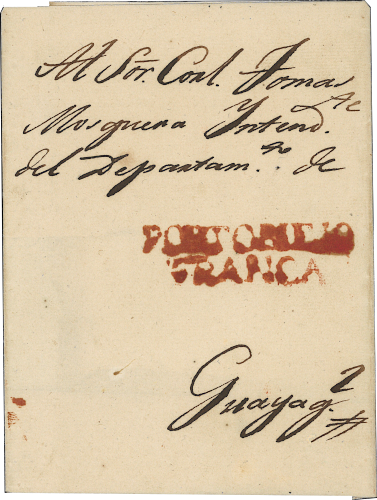 Al Sōr. Conl. Tomas
Mosquera Yntend.te
del Departam.to de
PORTOBIEJO
FRANCA
Guayaq.l